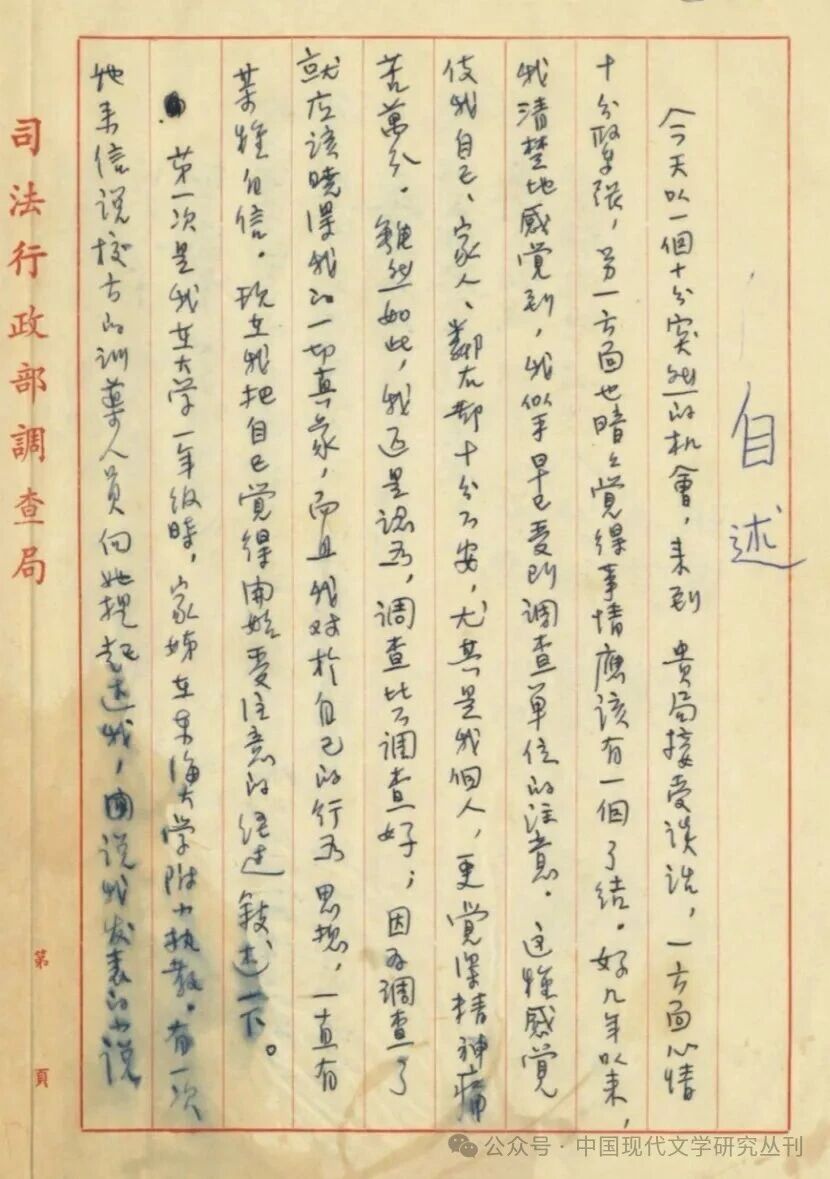 自述
今天以一個十分突然的机會，来到 貴局接受谈話，一方面心情
十分緊張，另一方面也暗々覚得事情應該有一個了结。好几年以来，
我清楚地感覚到，我似乎早已受到調查單位的注意。这種感覚
使我自己、家人、鄰右都十分不安，尤其是我個人，更覚得精神痛
苦萬分。雖然如此，我还是認为，調查比不調查好；因为調查了
就应該曉得我的一切真象，而且我对於自己的行为思想，一直有
某種自信。现在我把自己覚得開始受注意的经过敍述一下。
第一次是我在大学一年级時，家姊在東海大学附小执教。有一次
她来信说校方的訓導人員向她提起过我，说我发表的小说
司法行政部調查局
第 頁
公众号·中国现代文学研究丛刊